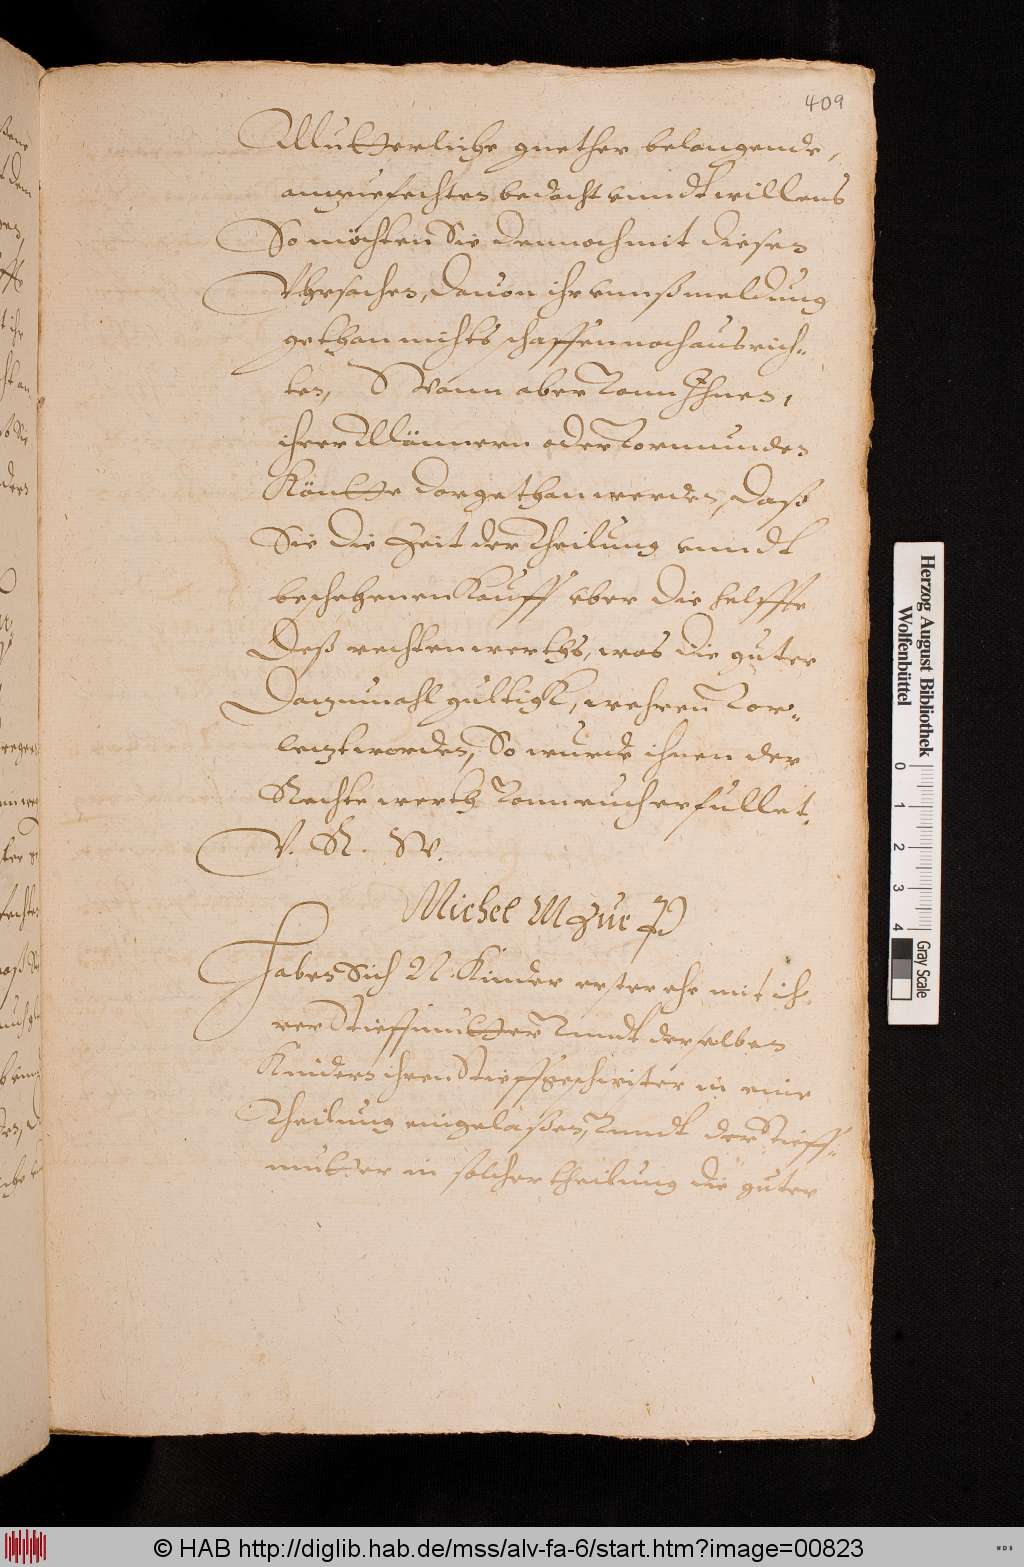 409
Mutterliche guether belangende,
anzuefechten bedacht vnndt willens
So möchten Sie dennoch mit diesen
Vhrsachen, dauon ihr vnnß meldung
gethan nichts schaffen noch ausrich-
ten, Wann aber von Ihnen,
ihren Männern oder Vormunden
Köntte dargethan werden, daß
Sie die Zeit der Theilung vnndt
beschehenen Kauff vber die helffte
deß rechten werths, was die guter
dazumahl gultigk, wehren vor-
letzt worden, So wurde ihnen der
Rechte werth von euch erfullet.
V. R. W.
Michel
Haben Sich N. Kinder erster ehe mit ih-
rer Stieffmutter vnndt derselben
Kindern ihren Stieffgeschwister in eine
Theilung eingelaßen, vnndt der Stieff-
mutter in solcher theilung die guter
Herzog August Bibliothek
Wolfenbüttel
0 1 2 3 4
Gray Scale
© HAB http://diglib.hab.de/mss/alv-fa-6/start.htm?image=00823
WDB